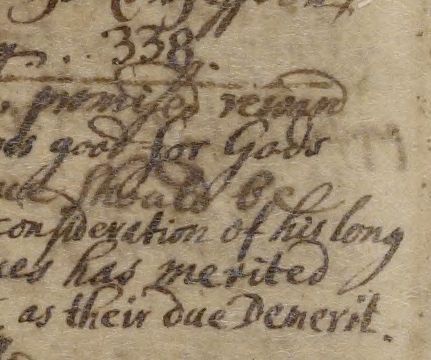 338.
promised reward
good for Gods
should be
consideration of his long
has merited
as their due Demerit.